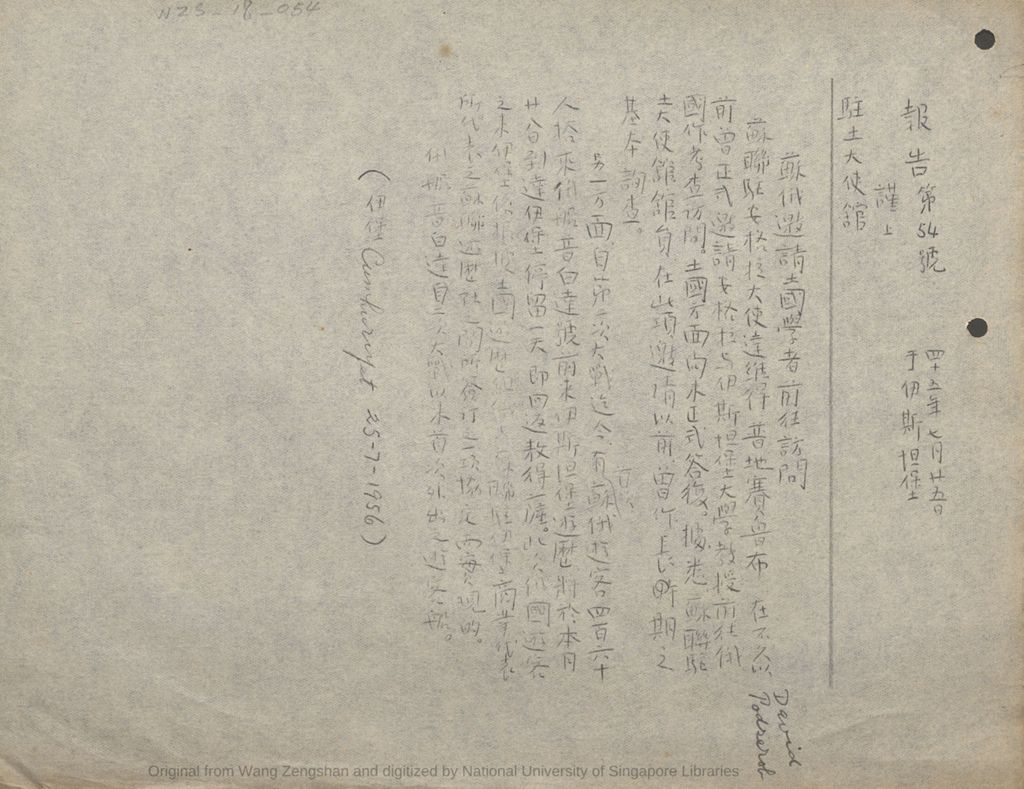 NZS-18-054
報告第54號
四十五年七月廿五日
于伊斯坦堡
謹上
駐土大使館
蘇俄邀請土國學者前往訪問
蘇聯駐安格拉大使達維得 普地賽魯布 在不久以
David
Podserob
前曾正式邀請安格拉与伊斯坦堡大學教授前往俄
國作考查訪問。土國方面尚未正式答復。據悉蘇聯駐
土大使館館員在此項邀請以前曾作長時期之
基本調查。
另一方面、自第二次大戰迄今、有蘇俄遊客四百六十
人搭乘俄船 普白達號前來伊斯坦堡遊歷。將於本月
廿八日到達伊堡停留一天、即回返敖得薩。此次俄國遊客
之來伊堡係根據土國遊歷社与蘇聯駐伊堡商業代表
所代表之蘇聯遊歷社之間所簽訂之一項協定而實現的。
俄船普白達自二次大戰以來首次外出之遊客船。
(伊堡 Cumhuriyet 25-7-1956)
Original from Wang Zengshan and digitized by National University of Singapore Libraries